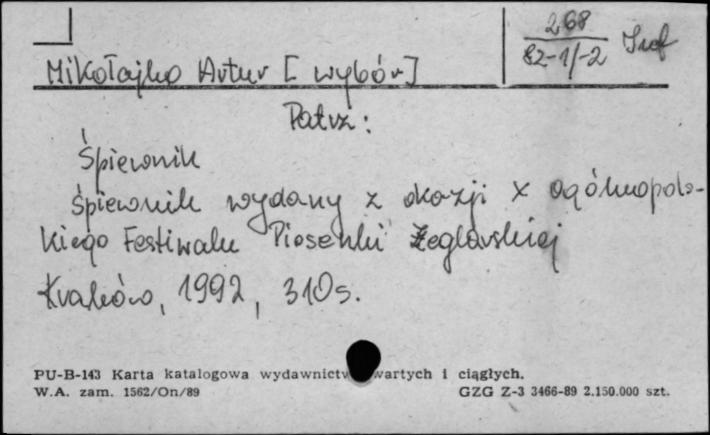 268
82-1/-2 Inf
Mikołajko Artur [wybór]
Patrz:
Śpiewnik
śpiewnik wydany z okazji X ogólnopols-
kiego Festiwalu Piosenki Żeglarskiej
Kraków, 1992, 310s.
PU-B-143 Karta katalogowa wydawnictw wartych i ciągłych.
W.A. zam. 1562/On/89 GZG Z-3 3466-89 2.150.000 szt.